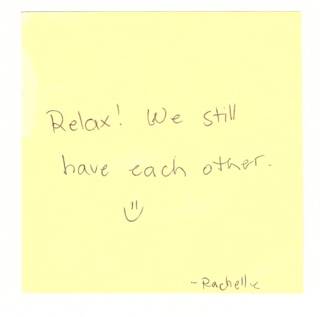 Relax! We still
have each other.
-Rachelle